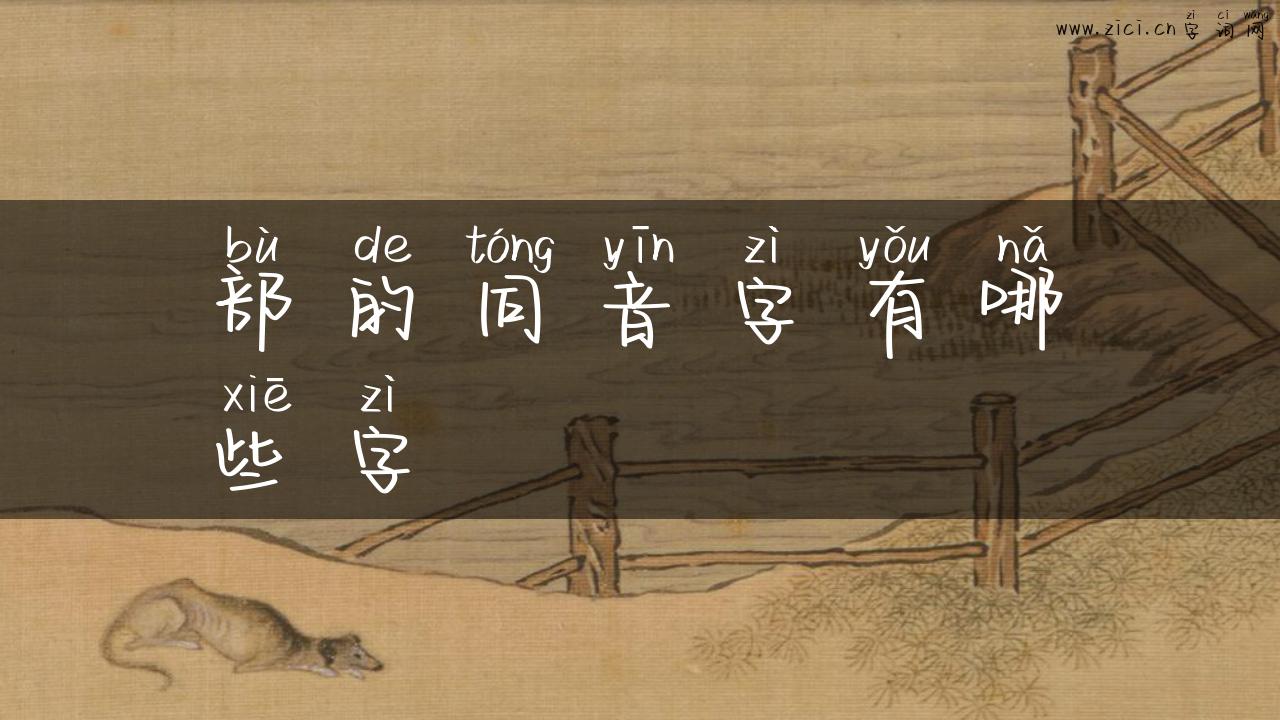 zì cí wǎng
www.zici.cn 字词网
bù de tóng yīn zì yǒu nǎ
部的同音字有哪
xiē zì
些字